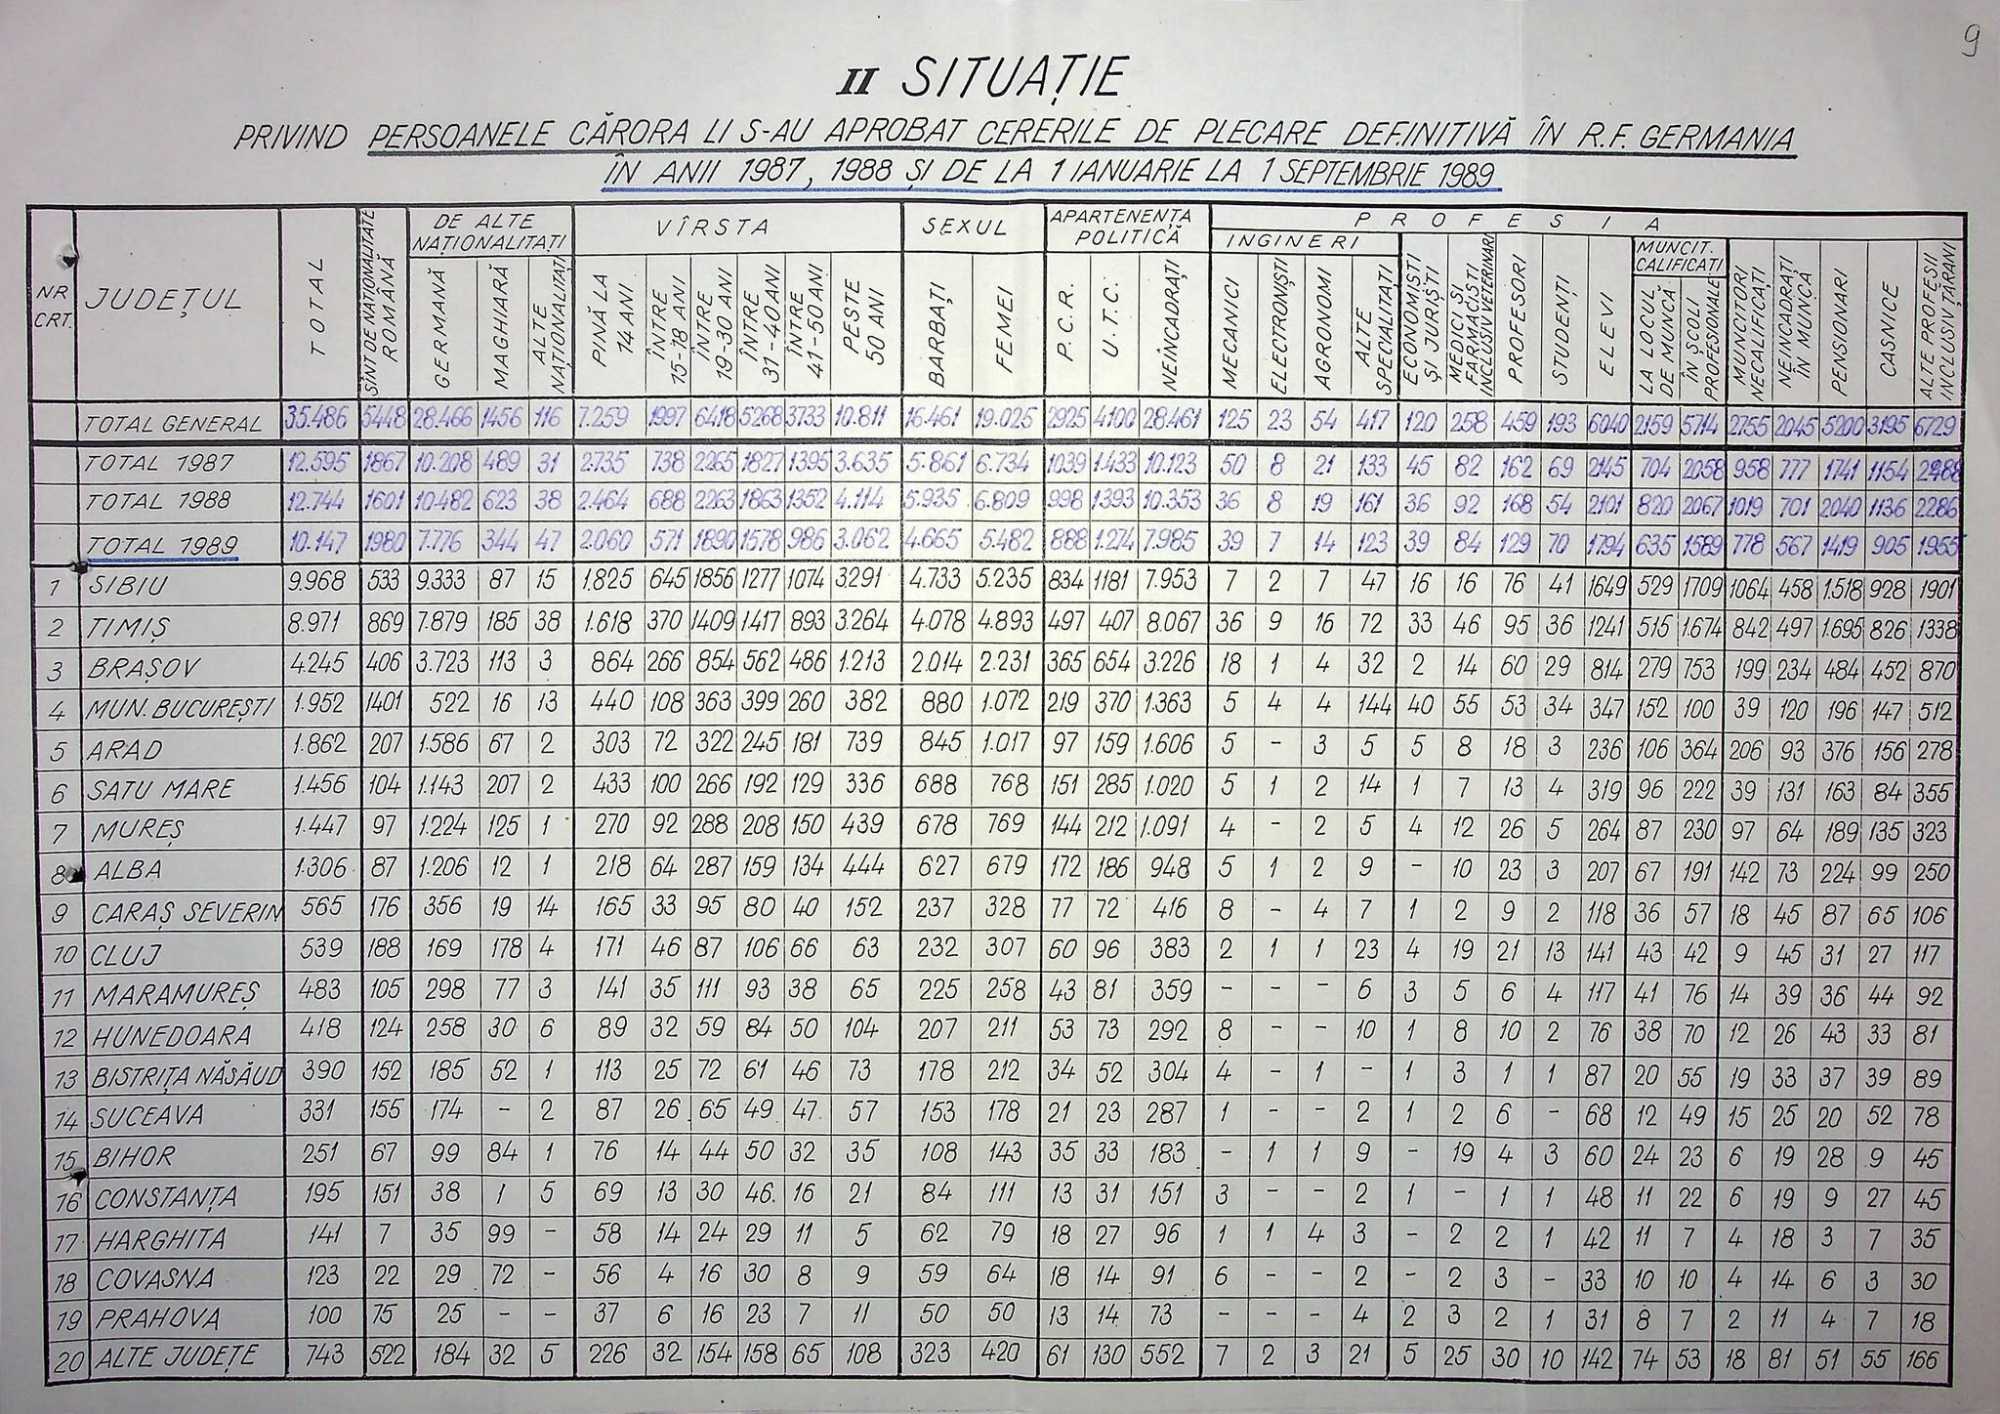 9
II SITUAȚIE
PRIVIND PERSOANELE CĂRORA LI S-AU APROBAT CERERILE DE PLECARE DEFINITIVĂ ÎN R.F. GERMANIA
ÎN ANII 1987, 1988 ȘI DE LA 1 IANUARIE LA 1 SEPTEMBRIE 1989
NR CRT. JUDEȚUL TOTAL SÎNT DE NAȚIONALITATE ROMÂNĂ DE ALTE NAȚIONALITAȚI VÎRSTA SEXUL APARTENENȚA POLITICĂ PROFESIA
INGINERI MUNCIT. CALIFICAȚI
GERMANĂ MAGHIARĂ ALTE NAȚIONALITAȚI PINĂ LA 14 ANI ÎNTRE 15-18 ANI ÎNTRE 19-30 ANI ÎNTRE 31-40 ANI ÎNTRE 41-50 ANI PESTE 50 ANI BARBAȚI FEMEI P.C.R. U.T.C. NEÎNCADRAȚI MECANICI ELECTRONIȘTI AGRONOMI ALTE SPECIALITAȚI ECONOMIȘTI ȘI JURIȘTI MEDICI ȘI FARMACIȘTI INCLUSIV VETERINARI PROFESORI STUDENȚI ELEVI LA LOCUL DE MUNCĂ ÎN ȘCOLI PROFESIONALE MUNCITORI NECALIFICAȚI NEÎNCADRAȚI ÎN MUNCĂ PENSIONARI CASNICE ALTE PROFESII INCLUSIV ȚĂRANI
TOTAL GENERAL 35.486 5448 28.466 1456 116 7.259 1997 6418 5268 3733 10.811 16.461 19.025 2925 4100 28.461 125 23 54 417 120 258 459 193 6040 2159 5714 2755 2045 5200 3195 6729
TOTAL 1987 12.595 1867 10.208 489 31 2.735 738 2265 1827 1395 3.635 5.861 6.734 1039 1.433 10.123 50 8 21 133 45 82 162 69 2145 704 2058 958 777 1741 1154 2488
TOTAL 1988 12.744 1601 10.482 623 38 2.464 688 2263 1863 1352 4.114 5.935 6.809 998 1393 10.353 36 8 19 161 36 92 168 54 2101 820 2067 1019 701 2040 1136 2286
TOTAL 1989 10.147 1980 7.776 344 47 2.060 571 1890 1578 986 3.062 4.665 5.482 888 1.274 7.985 39 7 14 123 39 84 129 70 1794 635 1589 778 567 1419 905 1955
1 SIBIU 9.968 533 9.333 87 15 1.825 645 1856 1277 1074 3291 4.733 5.235 834 1181 7.953 7 2 7 47 16 16 76 41 1649 529 1709 1064 458 1.518 928 1901
2 TIMIȘ 8.971 869 7.879 185 38 1.618 370 1409 1.417 893 3.264 4.078 4.893 497 407 8.067 36 9 16 72 33 46 95 36 1241 515 1.674 842 497 1.695 826 1338
3 BRAȘOV 4.245 406 3.723 113 3 864 266 854 562 486 1.213 2.014 2.231 365 654 3.226 18 1 4 32 2 14 60 29 814 279 753 199 234 484 452 870
4 MUN. BUCUREȘTI 1.952 1401 522 16 13 440 108 363 399 260 382 880 1.072 219 370 1.363 5 4 4 144 40 55 53 34 347 152 100 39 120 196 147 512
5 ARAD 1.862 207 1.586 67 2 303 72 322 245 181 739 845 1.017 97 159 1.606 5 - 3 5 5 8 18 3 236 106 364 206 93 376 156 278
6 SATU MARE 1.456 104 1.143 207 2 433 100 266 192 129 336 688 768 151 285 1.020 5 1 2 14 1 7 13 4 319 96 222 39 131 163 84 355
7 MUREȘ 1.447 97 1.224 125 1 270 92 288 208 150 439 678 769 144 212 1.091 4 - 2 5 4 12 26 5 264 87 230 97 64 189 135 323
8 ALBA 1.306 87 1.206 12 1 218 64 287 159 134 444 627 679 172 186 948 5 1 2 9 - 10 23 3 207 67 191 142 73 224 99 250
9 CARAȘ SEVERIN 565 176 356 19 14 165 33 95 80 40 152 237 328 77 72 416 8 - 4 7 1 2 9 2 118 36 57 18 45 87 65 106
10 CLUJ 539 188 169 178 4 171 46 87 106 66 63 232 307 60 96 383 2 1 1 23 4 19 21 13 141 43 42 9 45 31 27 117
11 MARAMUREȘ 483 105 298 77 3 141 35 111 93 38 65 225 258 43 81 359 - - - 6 3 5 6 4 117 41 76 14 39 36 44 92
12 HUNEDOARA 418 124 258 30 6 89 32 59 84 50 104 207 211 53 73 292 8 - - 10 1 8 10 2 76 38 70 12 26 43 33 81
13 BISTRIȚA NĂSĂUD 390 152 185 52 1 113 25 72 61 46 73 178 212 34 52 304 4 - 1 - 1 3 1 1 87 20 55 19 33 37 39 89
14 SUCEAVA 331 155 174 - 2 87 26 65 49 47 57 153 178 21 23 287 1 - - 2 1 2 6 - 68 12 49 15 25 20 52 78
15 BIHOR 251 67 99 84 1 76 14 44 50 32 35 108 143 35 33 183 - 1 1 9 - 19 4 3 60 24 23 6 19 28 9 45
16 CONSTANȚA 195 151 38 1 5 69 13 30 46 16 21 84 111 13 31 151 3 - - 2 1 - 1 1 48 11 22 6 19 9 27 45
17 HARGHITA 141 7 35 99 - 58 14 24 29 11 5 62 79 18 27 96 1 1 4 3 - 2 2 1 42 11 7 4 18 3 7 35
18 COVASNA 123 22 29 72 - 56 4 16 30 8 9 59 64 18 14 91 6 - - 2 - 2 3 - 33 10 10 4 14 6 3 30
19 PRAHOVA 100 75 25 - - 37 6 16 23 7 11 50 50 13 14 73 - - - 4 2 3 2 1 31 8 7 2 11 4 7 18
20 ALTE JUDEȚE 743 522 184 32 5 226 32 154 158 65 108 323 420 61 130 552 7 2 3 21 5 25 30 10 142 74 53 18 81 51 55 166